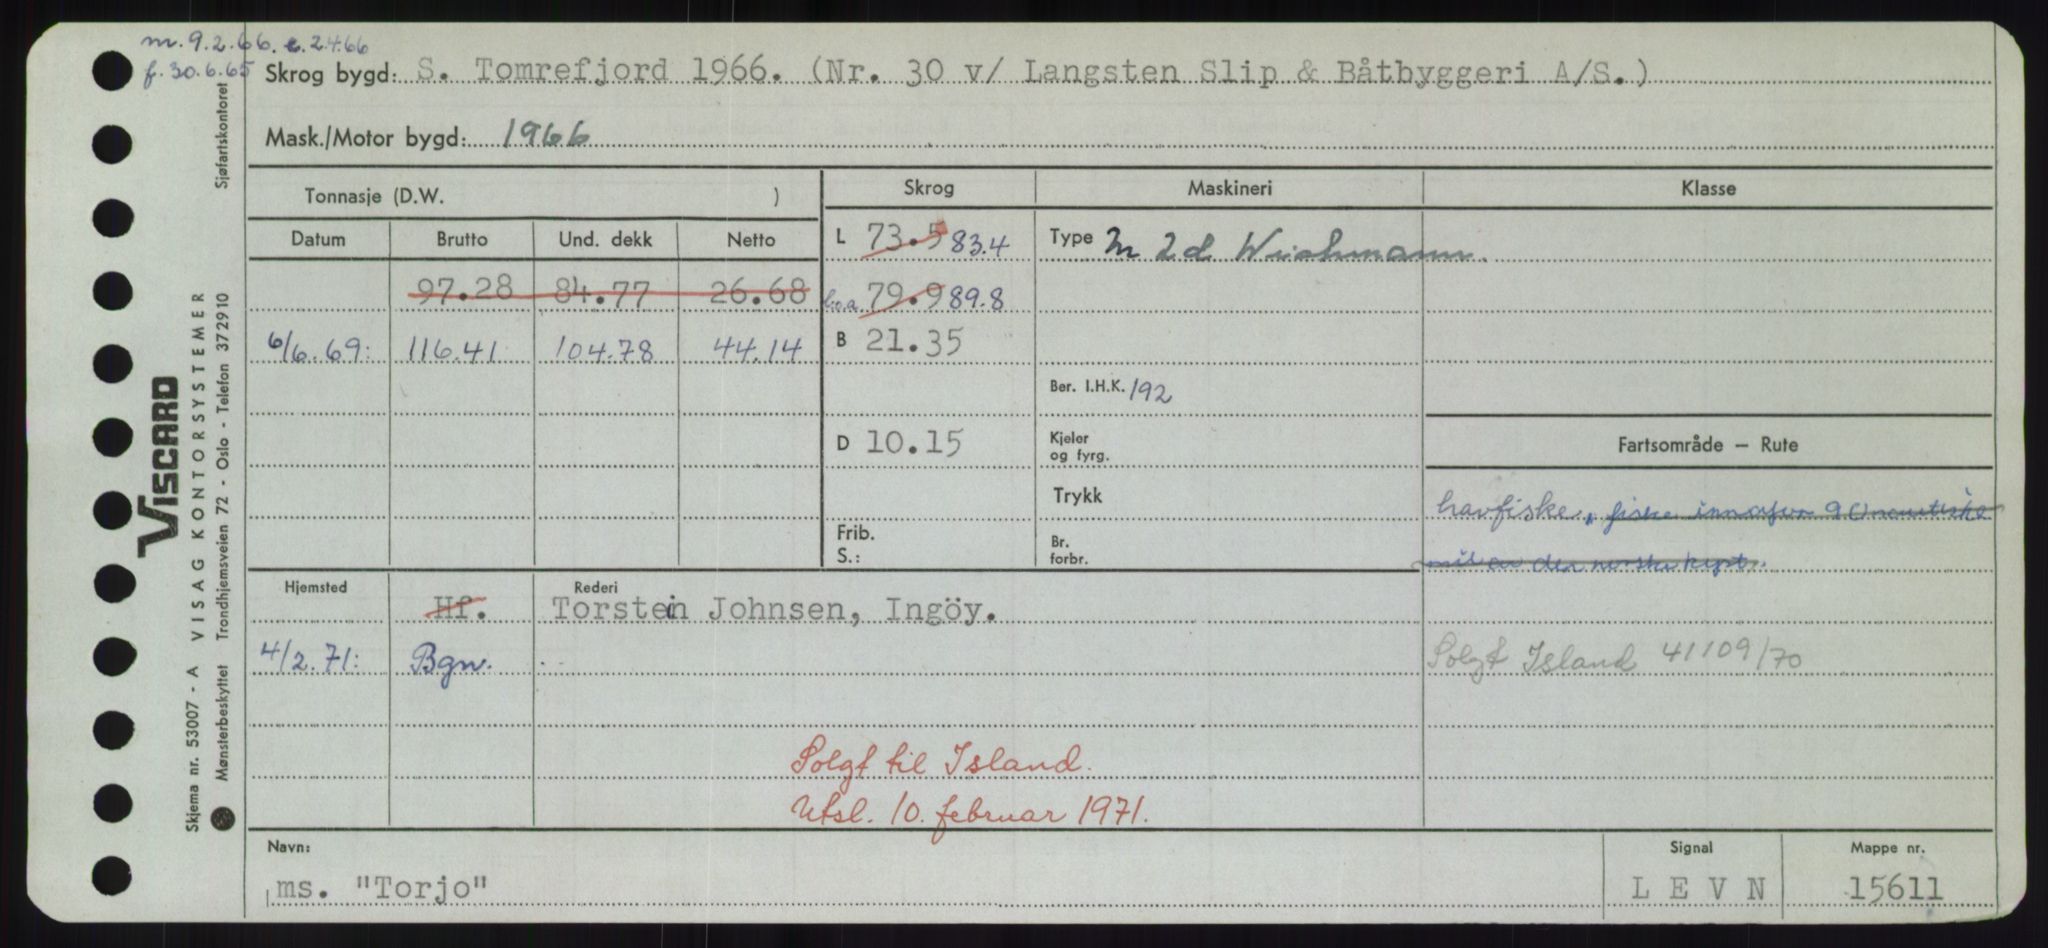 m. 9.2.66. e. 2.4.66
f. 30.6.65
Skrog bygd: S. Tomrefjord 1966. (Nr. 30 v/ Langsten Slip & Båtbyggeri A/S.)
Mask./Motor bygd: 1966
Tonnasje (D.W. )
Skrog Maskineri Klasse
Datum Brutto Und. dekk Netto
L 73.5 83.4 Type M 2d Wichmann.
97.28 84.77 26.68
l.o.a. 79.9 89.8
6/6.69: 116.41 104.78 44.14
B 21.35
Ber. I.H.K. 192
D 10.15
Kjeler og fyrg.
Fartsområde — Rute
Trykk
havfiske, fiske innafor 90 nautiske
Frib.
S.:
Br. forbr.
mil av den norske kyst.
Hjemsted Rederi
Hf. Torstein Johnsen, Ingöy.
4/2.71: Bgn. ..
Solgt Island 41109/70
Solgt til Island.
Utsl. 10. februar 1971.
Navn: Signal Mappe nr.
ms. "Torjo" L E V N 15611
Viscard
Skjema nr. 53007 - A VISAG KONTORSYSTEMER
Mønsterbeskyttet Trondhjemsveien 72 - Oslo - Telefon 372910 Sjøfartskontoret